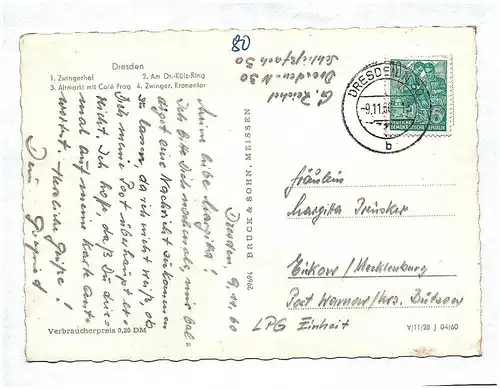 80
Dresden
1. Zwingerhof 2. Am Dr.-Külz-Ring
3. Altmarkt mit Café Prag 4. Zwinger, Kronentor
G. Reichel
Dresden-N 30
Schließfach 50
Dresden, 9.11.60
Meine liebe Margitta!
Ich bitte Dich nochmals, mir bal-
digst eine Nachricht zukommen
zu lassen, da ich nicht weiß, ob
Dich meine Post überhaupt er-
reicht. Ich hoffe, daß Du dies-
mal auf meine Karte ant-
wortest. Herzliche Grüße!
Dein
Verbraucherpreis 0,20 DM
7694 BRÜCK & SOHN, MEISSEN
DRESDEN
-9.11.60
b
5
DEUTSCHE DEMOKRATISCHE REPUBLIK
Fräulein
Margitta
/Mecklenburg
Post Warnow/Krs. Bützow
LPG Einheit
V/11/28 J 04/60